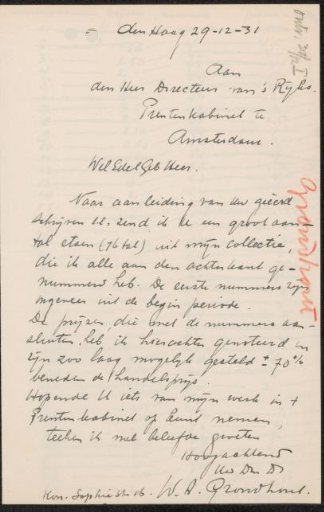 den Haag 29-12-31
Aan
den Heer Directeur van 's Ryks.
Prentenkabinet te
Amsterdam.
WelEdelGeb Heer.
Naar aanleiding van Uw geëerd
schrijven ll. zend ik U een groot aan-
tal etsen (76 tal) uit mijn collectie,
die ik alle aan den achterkant ge-
nummerd heb. De eerste nummers zijn
ongeveer uit de begin periode.
De prijzen, die met de nummers aan-
sluiten, heb ik hierachter genoteerd en
zijn zoo laag mogelijk gesteld ± 70 %
beneden de handelsprijs.
Hopende U iets van mijn werk in 't
Prentenkabinet op kunt nemen,
teeken ik met beleefde groeten
Hoogachtend
Uw Dw. D.
Kon. Sophiestr. W. A. Grondhout.
Grondhout